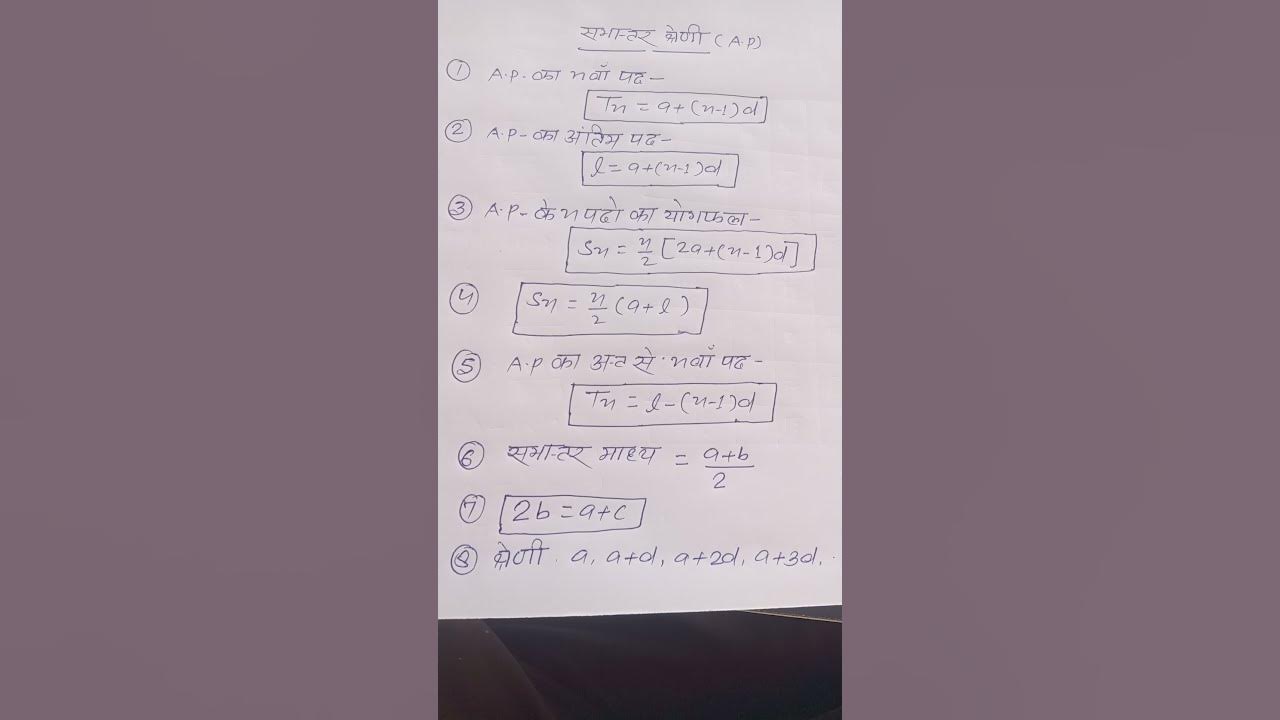 समान्तर श्रेणी (A.P)
① A.P. का nवाँ पद –
Tn = a+(n-1)d
② A.P – का अंतिम पद –
l = a+(n-1)d
③ A.P – के n पदो का योगफल –
Sn = n/2 [2a+(n-1)d]
④ Sn = n/2 (a+l)
⑤ A.P का अन्त से nवाँ पद –
Tn = l-(n-1)d
⑥ समान्तर माध्य = a+b/2
⑦ 2b = a+c
⑧ श्रेणी. a, a+d, a+2d, a+3d, .